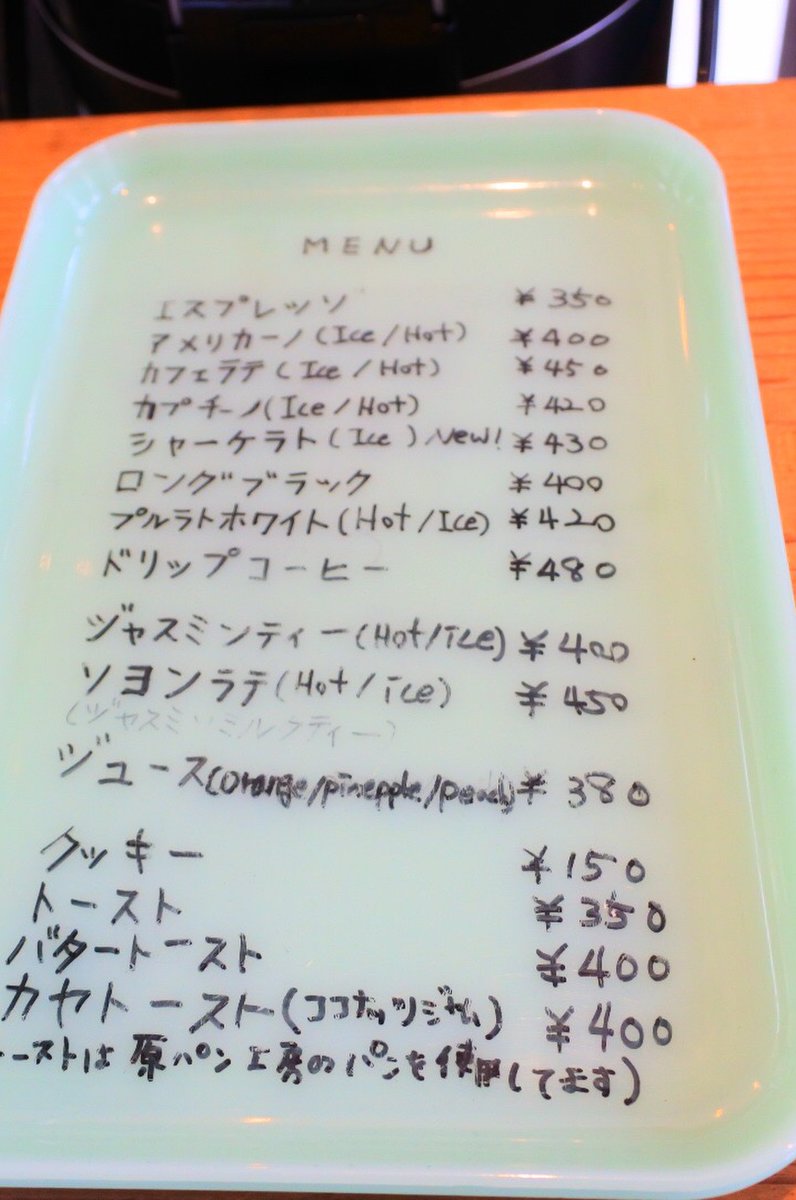 MENU
エスプレッソ ¥350
アメリカーノ(Ice/Hot) ¥400
カフェラテ(Ice/Hot) ¥450
カプチーノ(Ice/Hot) ¥420
シャーケラト(Ice) New! ¥430
ロングブラック ¥400
プルラトホワイト(Hot/Ice) ¥420
ドリップコーヒー ¥480
ジャスミンティー(Hot/ice) ¥400
ソヨンラテ(Hot/ice) ¥450
(ジャスミンミルクティー)
ジュース(orange/pineapple/peach) ¥380
クッキー ¥150
トースト ¥350
バタートースト ¥400
カヤトースト(ココナッツジャム) ¥400
ーストは原パン工房のパンを使用してます)